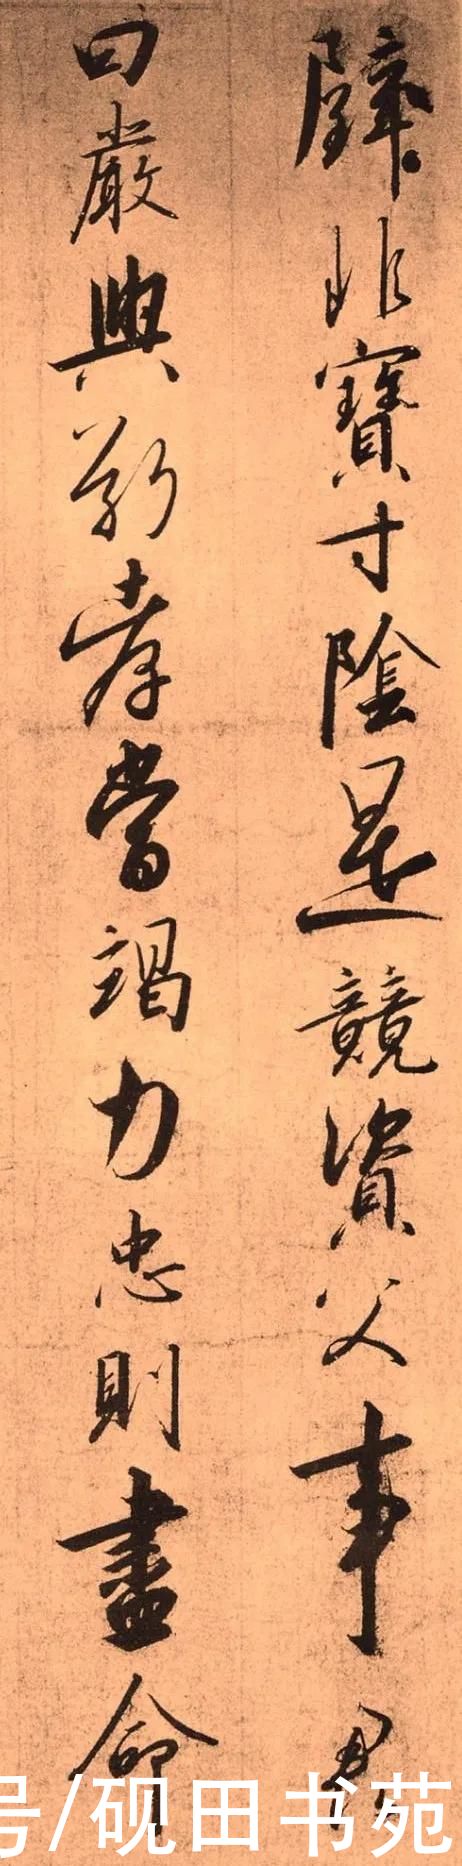 璧非寶寸陰是競資父事君
曰嚴與敬孝當竭力忠則盡命
号/砚田书苑